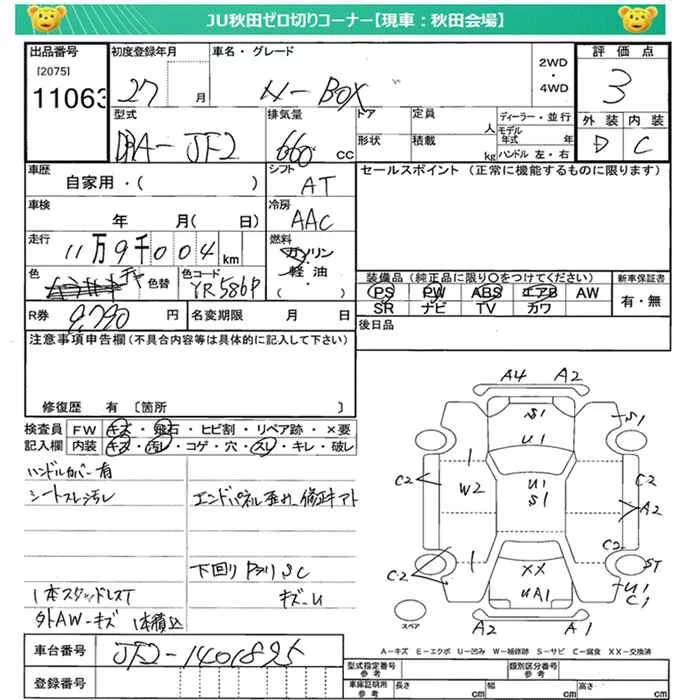 JU秋田ゼロ切りコーナー【現車：秋田会場】
出品番号
[2075]
11063
初度登録年月
27 月
車名・グレード
N-BOX
2WD
・
4WD
評価点
3
外装 内装
D C
型式
DBA-JF2
排気量
660 CC
ドア
形状
定員 人
積載 kg
ディーラー・並行
モデル年式 年
ハンドル 左・右
車歴
自家用・( )
シフト
AT
セールスポイント（正常に機能するものに限ります）
車検
年 月( 日)
冷房
AAC
走行
11万9千004km
燃料
ガソリン
軽油・
( )
色
色替
色コード
YR586P
装備品（純正品に限り○をつけてください）
PS PW ABS エアB AW
SR ナビ TV カワ
新車保証書
有・無
R券
9,790 円
名変期限 月 日
後日品
注意事項申告欄（不具合内容等は具体的に記入して下さい）
修復歴 有 〔箇所 〕
検査員
記入欄
FW キズ・飛石・ヒビ割・リペア跡・×要
内装 キズ・汚レ・コゲ・穴・スレ・キレ・破レ
ハンドルカバー有
シートスレ汚レ
エンドパネル歪み修正アト
下回り サビSC
キズ-U
1本スタッドレスT
外AW-キズ 1本積込
A4 A2
S1
S1
U1
C2
W2
U1
S1
C2
A2
C2
C2
ST
XX
U1
C1
UA1
A2 A1
スペア
A-キズ E-エクボ U-凹み W-補修跡 S-サビ C-腐食 XX-交換済
車台番号
JF2-1401895
登録番号
型式指定番号
参考
類別区分番号
参考
車庫証明用
参考
長さ cm
幅 cm
高さ cm